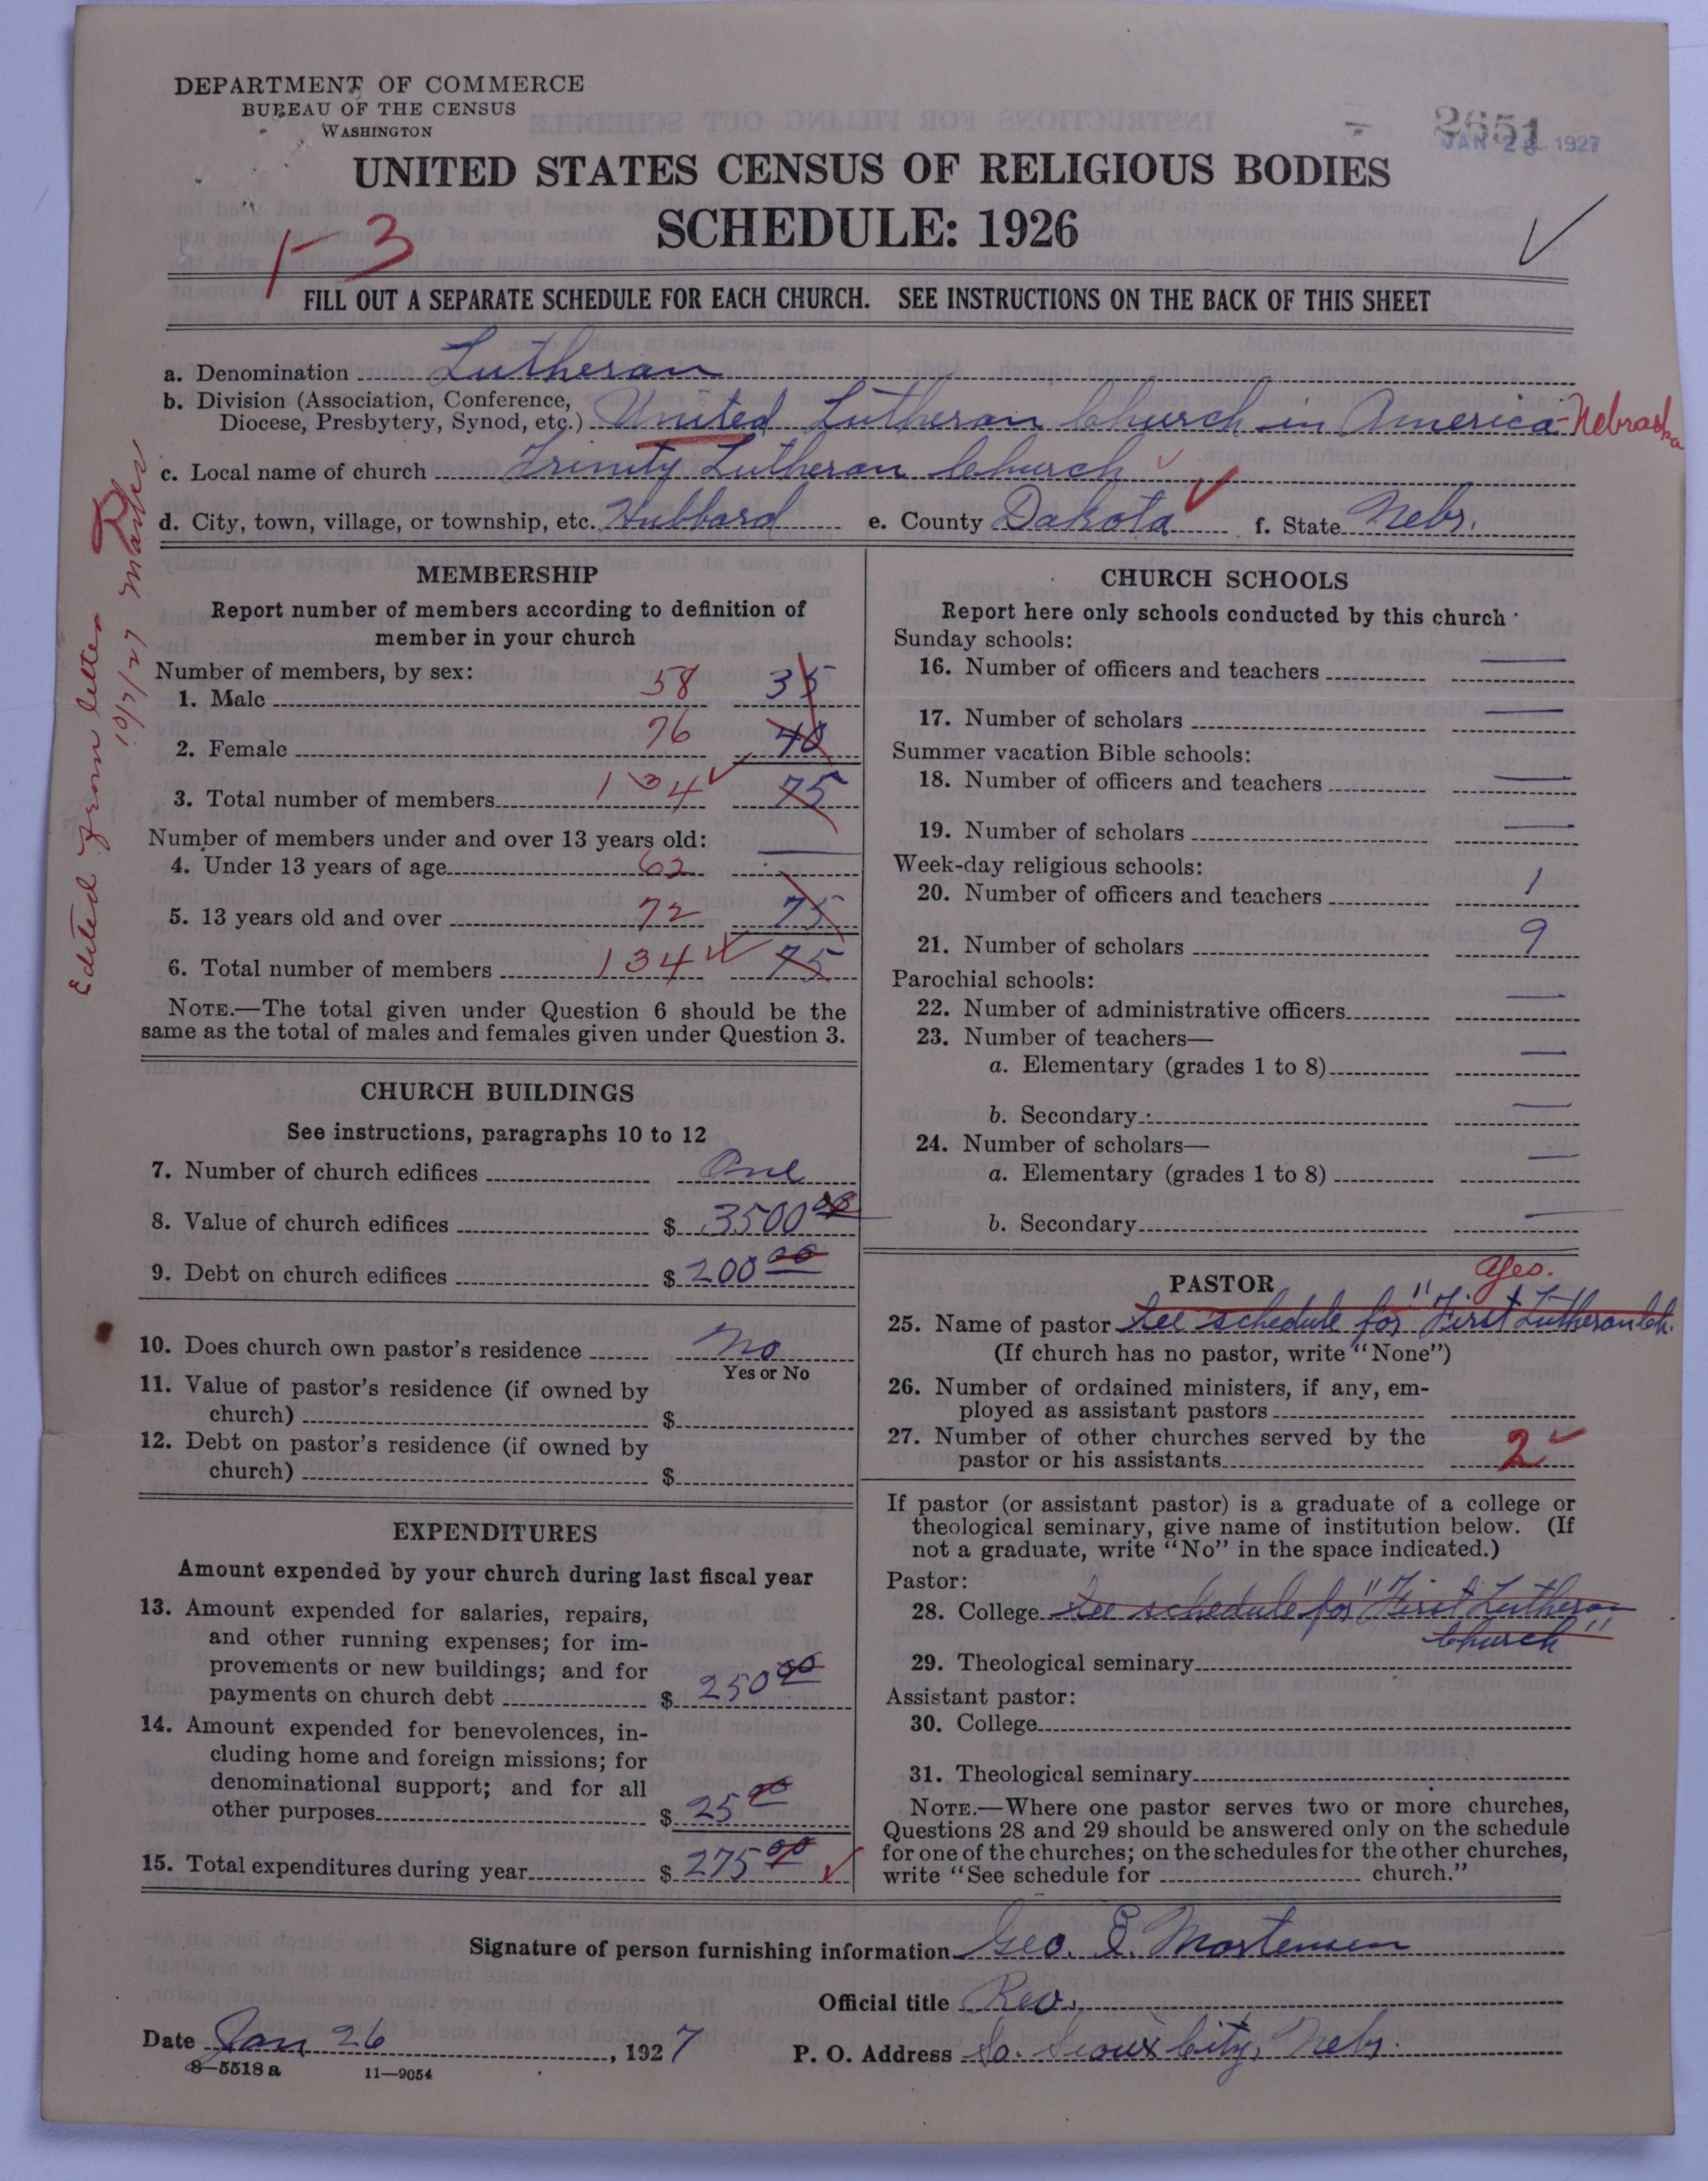 DEPARTMENT OF COMMERCE
BUREAU OF THE CENSUS
WASHINGTON
2651
JAN 28 1927
UNITED STATES CENSUS OF RELIGIOUS BODIES
SCHEDULE: 1926
1-3
FILL OUT A SEPARATE SCHEDULE FOR EACH CHURCH. SEE INSTRUCTIONS ON THE BACK OF THIS SHEET
a. Denomination Lutheran
b. Division (Association, Conference,
Diocese, Presbytery, Synod, etc.) United Lutheran Church in America - Nebraska
c. Local name of church Trinity Lutheran Church
d. City, town, village, or township, etc. Hubbard e. County Dakota f. State Nebr.
Edited from letter
10/7/27
MEMBERSHIP
Report number of members according to definition of
member in your church
Number of members, by sex:
1. Male 58 35
2. Female 76 40
3. Total number of members 134 75
Number of members under and over 13 years old:
4. Under 13 years of age 62 —
5. 13 years old and over 72 75
6. Total number of members 134 75
NOTE.—The total given under Question 6 should be the
same as the total of males and females given under Question 3.
CHURCH BUILDINGS
See instructions, paragraphs 10 to 12
7. Number of church edifices One
8. Value of church edifices $ 3500 00
9. Debt on church edifices $ 200 00
10. Does church own pastor's residence No
Yes or No
11. Value of pastor's residence (if owned by
church) $
12. Debt on pastor's residence (if owned by
church) $
EXPENDITURES
Amount expended by your church during last fiscal year
13. Amount expended for salaries, repairs,
and other running expenses; for im-
provements or new buildings; and for
payments on church debt $ 250 00
14. Amount expended for benevolences, in-
cluding home and foreign missions; for
denominational support; and for all
other purposes $ 25 00
15. Total expenditures during year $ 275 00
CHURCH SCHOOLS
Report here only schools conducted by this church
Sunday schools:
16. Number of officers and teachers —
17. Number of scholars —
Summer vacation Bible schools:
18. Number of officers and teachers —
19. Number of scholars —
Week-day religious schools:
20. Number of officers and teachers 1
21. Number of scholars 9
Parochial schools:
22. Number of administrative officers —
23. Number of teachers—
a. Elementary (grades 1 to 8) —
b. Secondary —
24. Number of scholars—
a. Elementary (grades 1 to 8) —
b. Secondary —
PASTOR
Yes.
25. Name of pastor See schedule for "First Lutheran Ch.
(If church has no pastor, write "None")
26. Number of ordained ministers, if any, em-
ployed as assistant pastors
27. Number of other churches served by the
pastor or his assistants 2
If pastor (or assistant pastor) is a graduate of a college or
theological seminary, give name of institution below. (If
not a graduate, write "No" in the space indicated.)
Pastor:
28. College See schedule for "First Lutheran
Church"
29. Theological seminary
Assistant pastor:
30. College
31. Theological seminary
NOTE.—Where one pastor serves two or more churches,
Questions 28 and 29 should be answered only on the schedule
for one of the churches; on the schedules for the other churches,
write "See schedule for church."
Signature of person furnishing information Geo. E. Mortensen
Official title Rev.
Date Jan 26, 1927 P. O. Address So. Sioux City, Nebr.
8—5518 a 11—9054